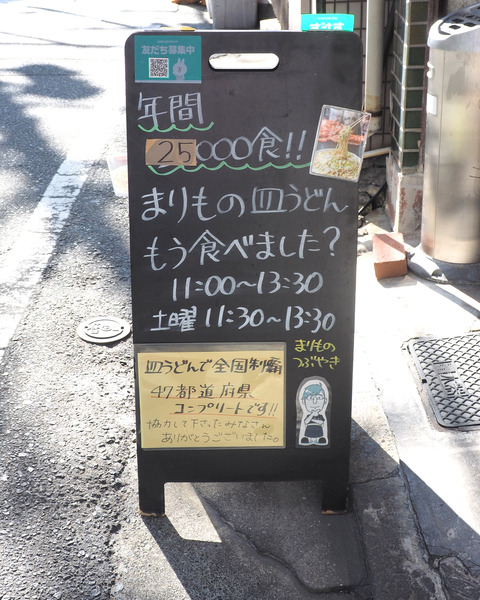 友だち募集中
年間
25000食!!
まりもの皿うどん
もう食べました?
11:00〜13:30
土曜 11:30〜13:30
まりもの
つぶやき
皿うどんで全国制覇
47都道府県
コンプリートです!!
協力して下さったみなさん
ありがとうございました。